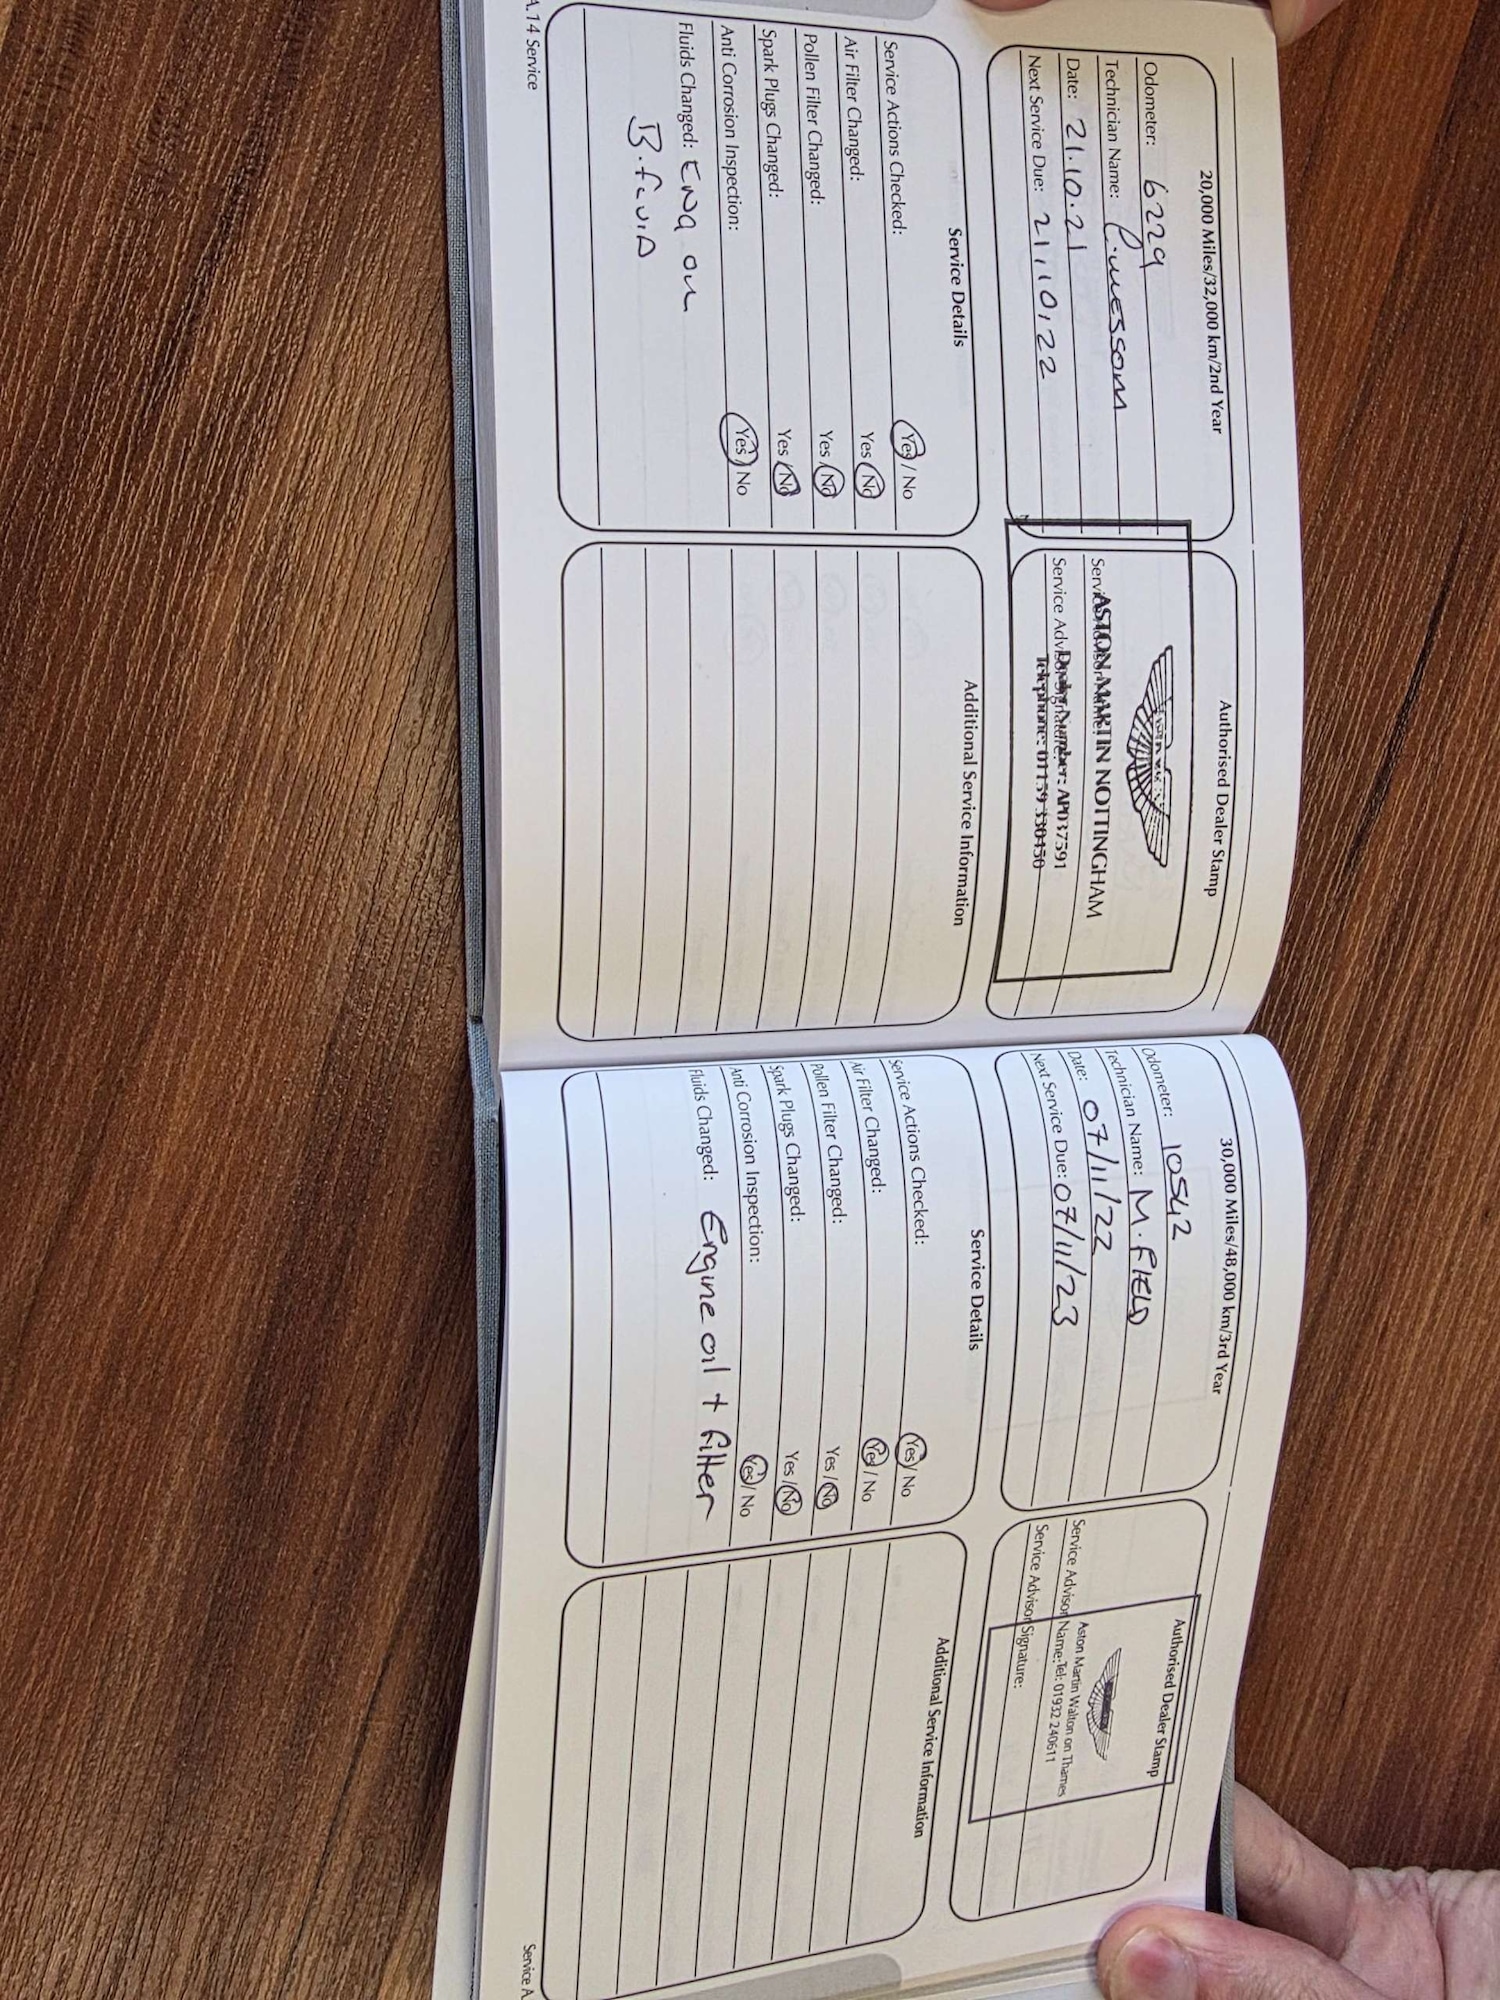 20,000 Miles/32,000 km/2nd Year
Odometer: 6229
Technician Name:
Date: 21.10.21
Next Service Due: 21.10.22
Authorised Dealer Stamp
ASTON MARTIN NOTTINGHAM
Service Advisor Name:
Dealer Number: AP037591
Service Advisor Signature:
Telephone: 01159 330450
Service Details
Service Actions Checked: Yes / No
Air Filter Changed: Yes / No
Pollen Filter Changed: Yes / No
Spark Plugs Changed: Yes / No
Anti Corrosion Inspection: Yes / No
Fluids Changed: ENG OIL
B.FLUID
Additional Service Information
A.14 Service
30,000 Miles/48,000 km/3rd Year
Odometer: 10542
Technician Name: M. FIELD
Date: 07/11/22
Next Service Due: 07/11/23
Authorised Dealer Stamp
Aston Martin Walton on Thames
Service Advisor Name: Tel: 01932 240611
Service Advisor Signature:
Service Details
Service Actions Checked: Yes / No
Air Filter Changed: Yes / No
Pollen Filter Changed: Yes / No
Spark Plugs Changed: Yes / No
Anti Corrosion Inspection: Yes / No
Fluids Changed: Engine oil + filter
Additional Service Information
Service A